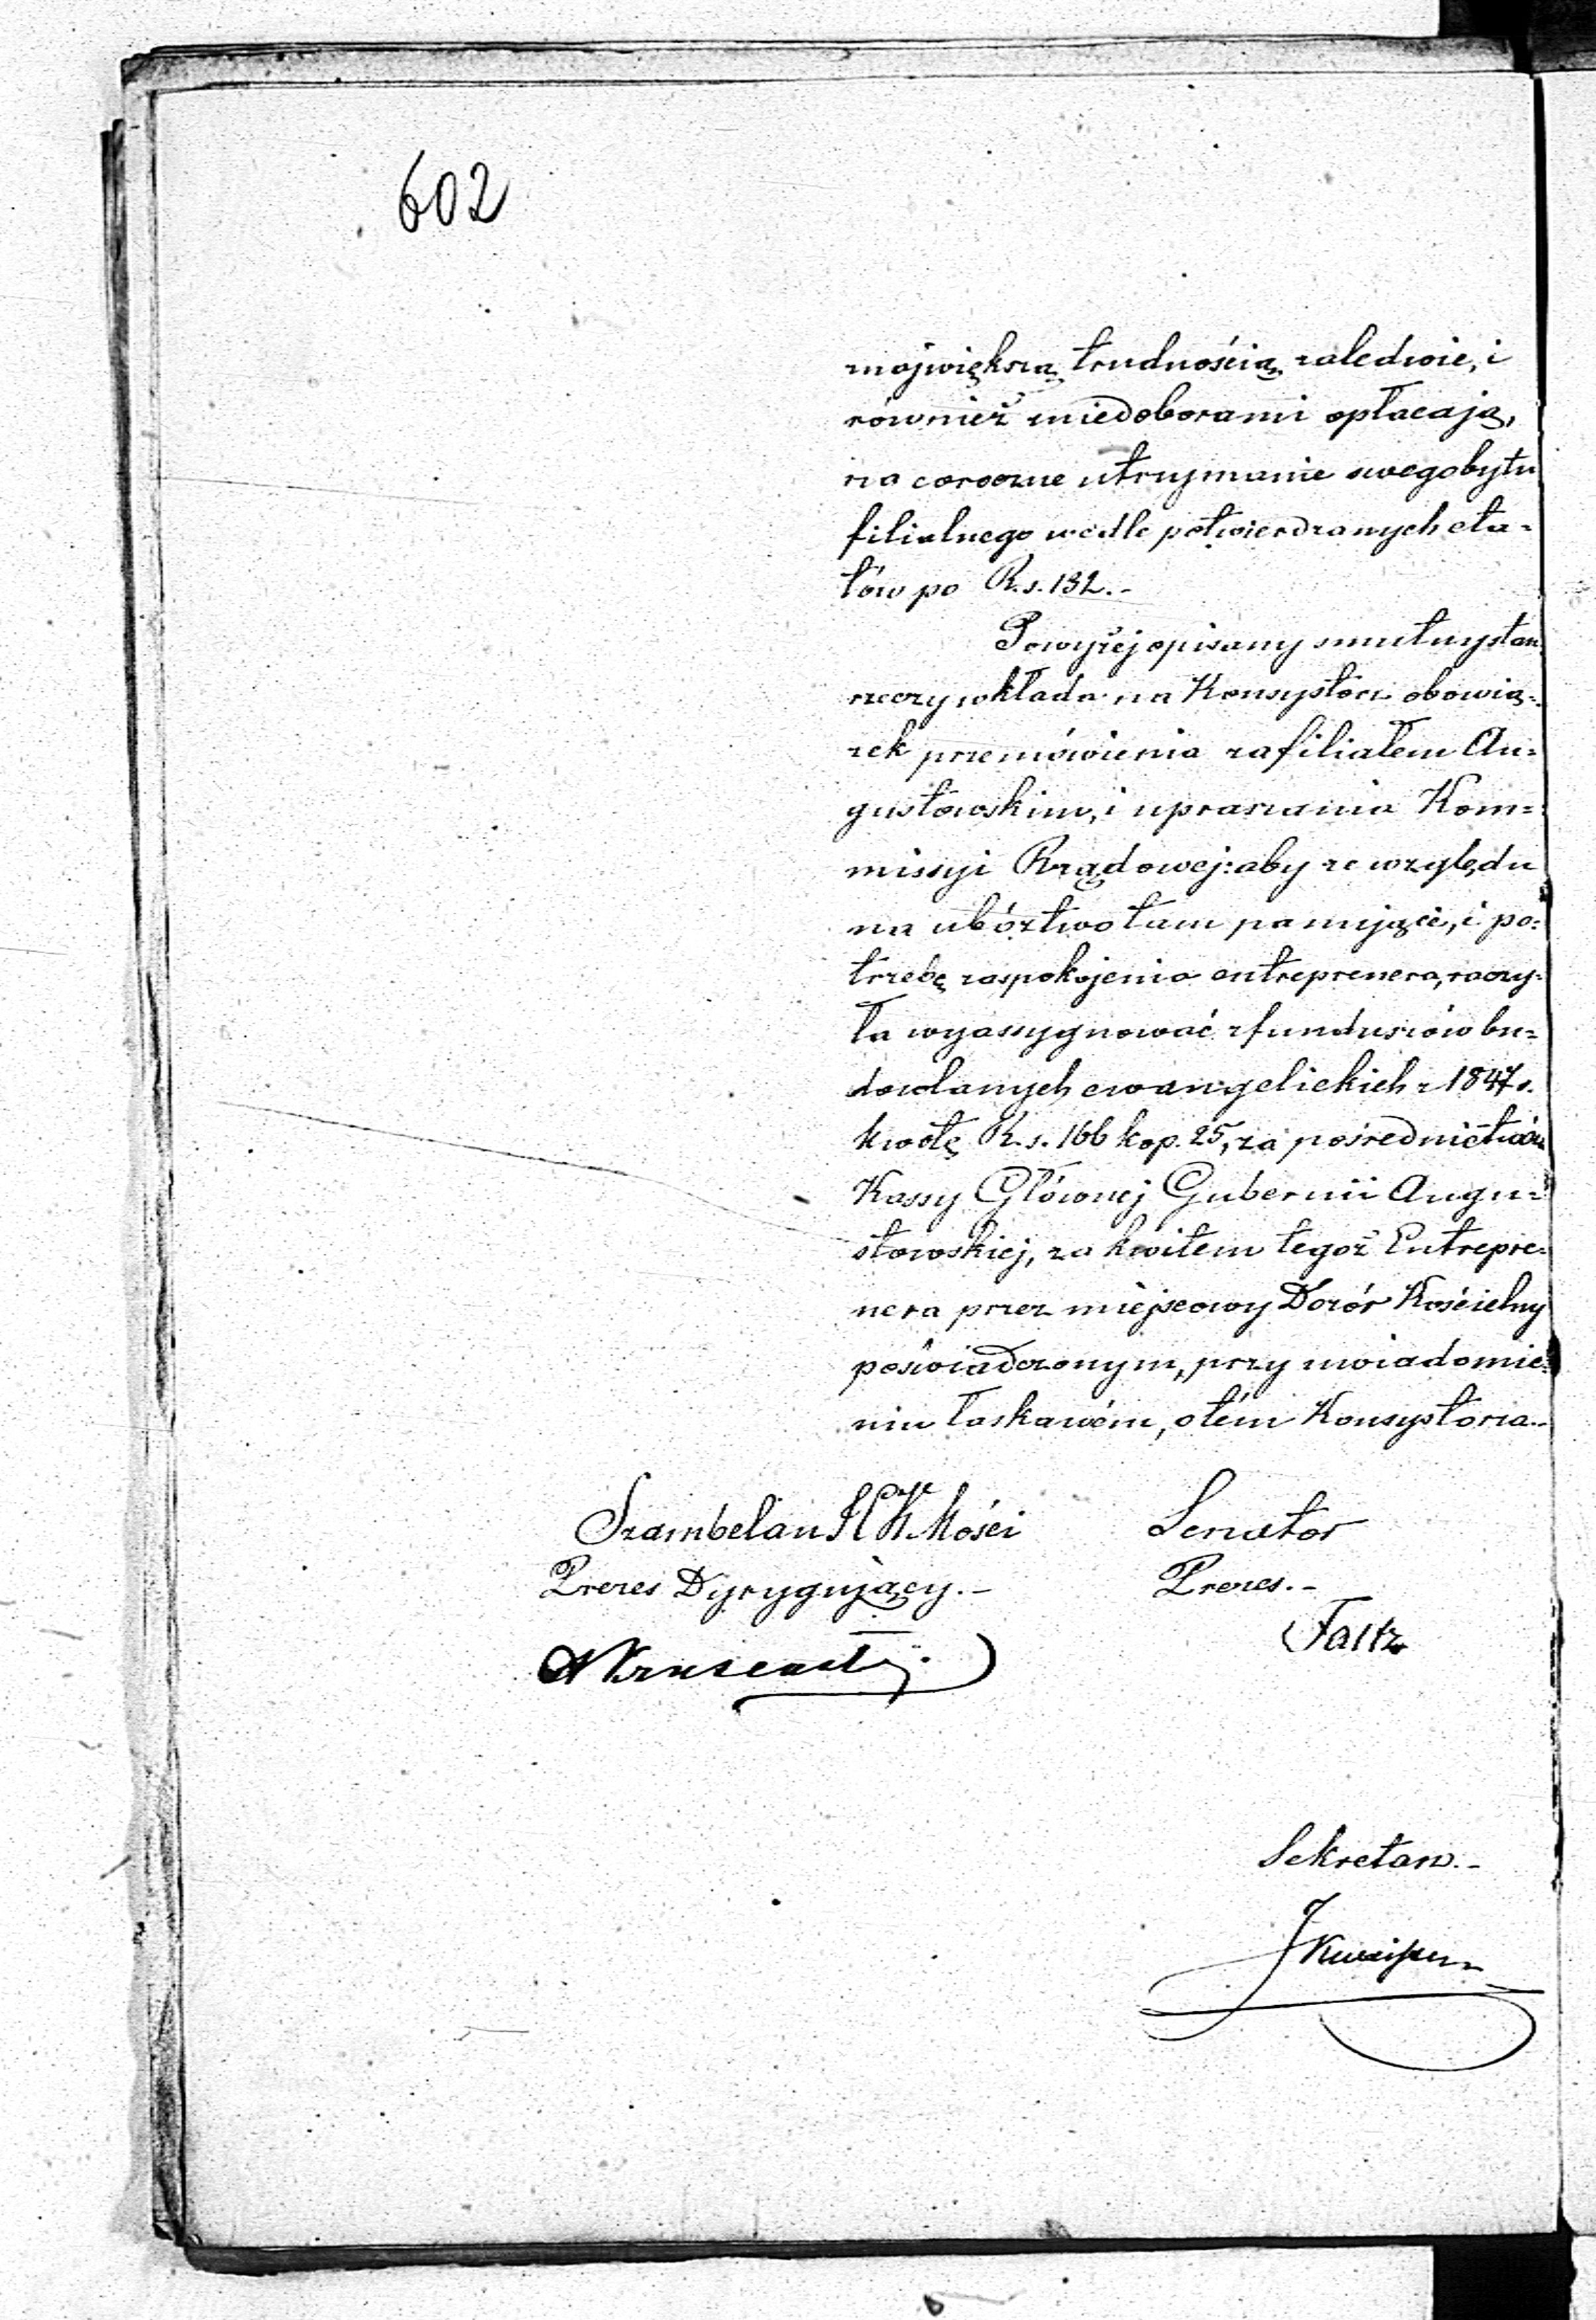 602
największą trudnością zaledwie, i
również niedoborami opłacają,
na coroczne utrzymanie swego bytu
filialnego wedle potwierdzanych eta=
tów po R. s. 132.-
Powyżej opisany smutny stan
rzeczy wkłada na Konsystorz obowią=
zek przemówienia za filiałem Au=
gustowskim, i upraszania Kom=
missyi Rządowej: aby ze względu
na ubóztwo tam panujące, i po=
trzebę zaspokojenia entreprenera, raczy=
ła wyassygnować z funduszów bu=
dowlanych ewangelickich z 1847 r.
kwotę R. s. 166 kop. 25, za pośrednictwem
Kassy Głównej Gubernii Augu=
stowskiej, za kwitem tegoż Entrepre=
nera przez miejscowy Dozór Kościelny
poświadczonym, przy uwiadomie=
niu łaskawém, o tém Konsystorza.-
Szambelan JCK Mości
Prezes Dyrygujący.-
Senator
Prezes.-
Faltz
Sekretarz.-